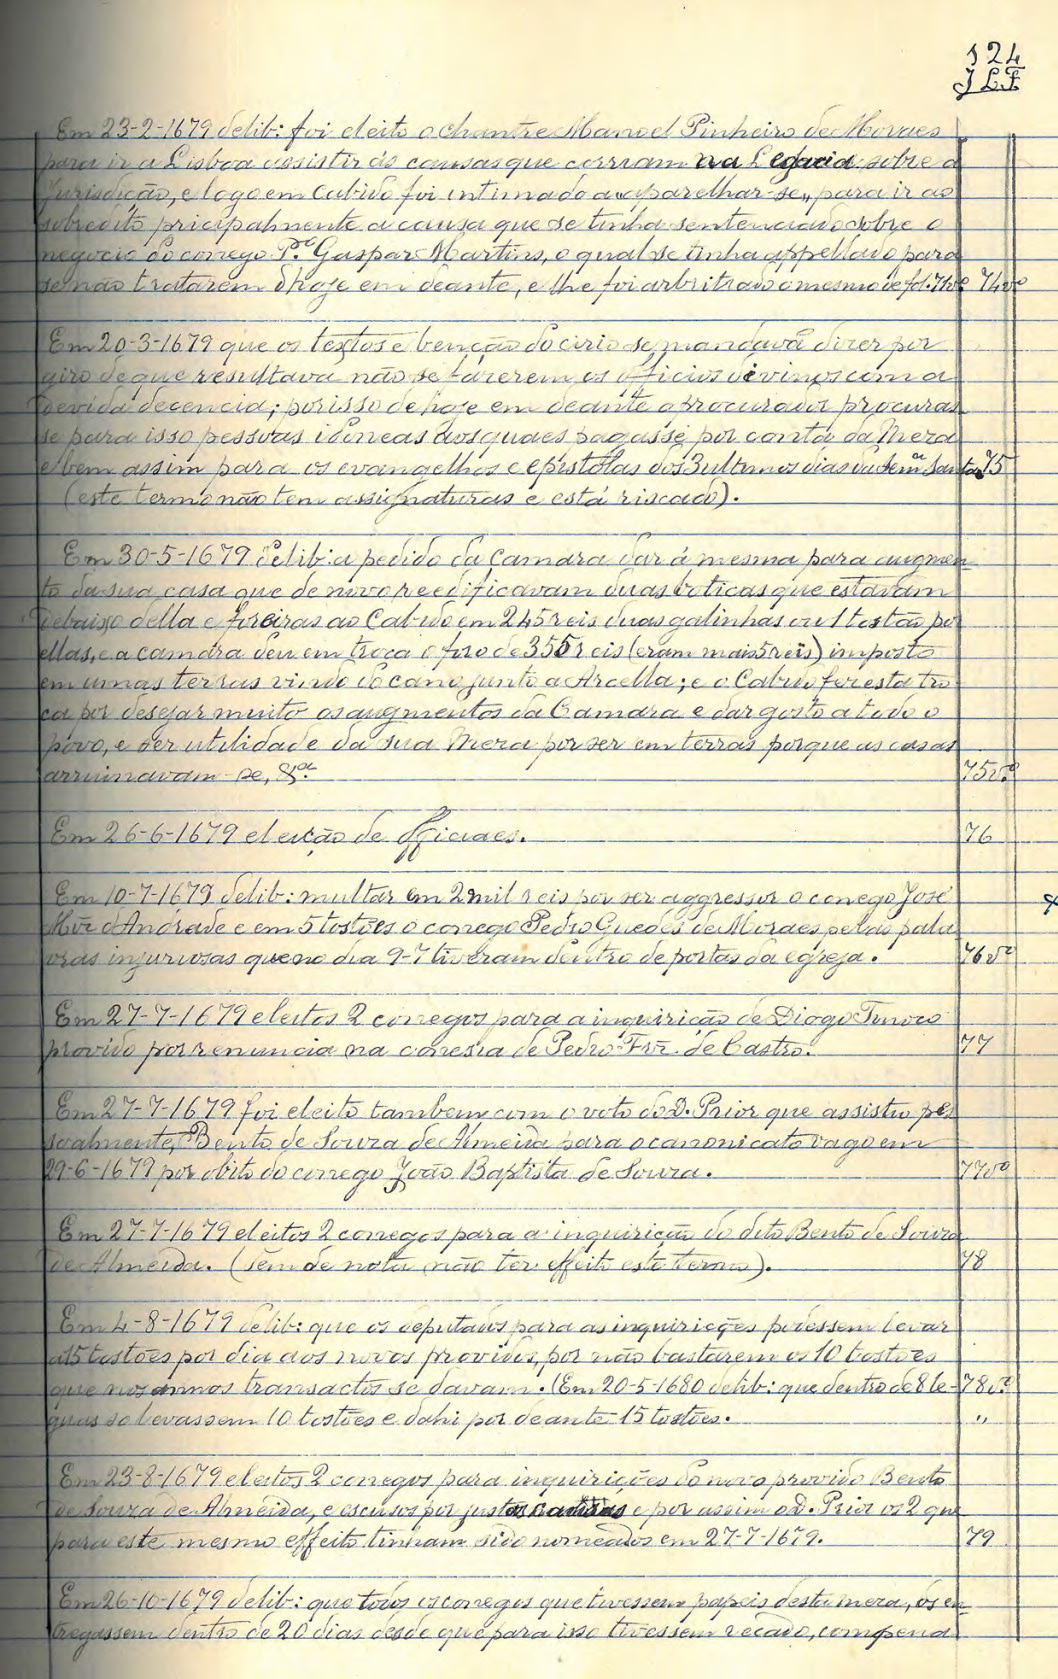 124
J L F
Em 23-2-1679 delib: foi eleito o chantre Manoel Pinheiro de Moraes
para ir a Lisboa assistir ás causas que corriam na Legacia sobre a
jurisdição, e logo em Cabido foi intimado a "aparelhar-se" para ir ao
sobredito pricipalmente a causa que se tinha sentenciado sobre o
negocio do conego Pe. Gaspar Martins, o qual se tinha appellado para
se não tratarem d'hoje em deante, e lhe foi arbitrado o mesmo de fol. 71vº 74vº
Em 20-3-1679 que os textos e benção do cirio se mandavã dizer por
giro de que resultava não se fazerem os officios divinos com a
devida decencia; por isso de hoje em deante o procurador procuras
se para isso pessoas idoneas aos quaes pagasse por conta da Meza
e bem assim para os evangelhos e epistolas dos 3 ultimos dias da semª Santa 75
(este termo não tem assignaturas e está riscado).
Em 30-5-1679 delib: a pedido da Camara dar á mesma para augmen-
to da sua casa que de novo reedificavam duas boticas que estavam
debaixo della e foreiras ao Cabido em 245 reis duas galinhas ou 1 tostão por
ellas, e a camara deu em troca o foro de 355 reis (eram mais 5 reis) imposto
em umas terras vindo do cano junto a Arcella; e o Cabido fez esta tro
ca por desejar muito os augmentos da Camara e dar gosto a todo o
povo, e ser utilidade da sua Meza por ser em terras porque as casas
arruinavam-se, &ª. 75vº
Em 26-6-1679 eleição de officiaes. 76
Em 10-7-1679 delib: multar em 2 mil reis por ser aggressor o conego José
Miz d'Andrade e em 5 tostões o conego Pedro Guedes de Moraes pelas pala
vras injuriosas que no dia 9-7 tiveram dentro de portas da egreja. 76vº
Em 27-7-1679 eleitos 2 conegos para a inquirição de Diogo Tinoco
provido por renuncia na conesia de Pedro Frz. de Castro. 77
Em 27-7-1679 foi eleito tambem com o voto do D. Prior que assistiu pes
soalmente, Bento de Souza de Almeida para o canonicato vago em
29-6-1679 por obito do conego João Baptista de Souza. 77vº
Em 27-7-1679 eleitos 2 conegos para a inquirição do dito Bento de Souza
de Almeida. (tem de nota não ter effeito este termo). 78
Em 4-8-1679 delib: que os deputados para as inquirições podessem levar
a 15 tostões por dia aos novos providos, por não bastarem os 10 tostões
que nos annos transactos se davam. (Em 20-5-1680 delib: que dentro de 8 le- 78vº
guas so levassem 10 tostões e dahi por deante 15 tostões. "
Em 23-8-1679 eleitos 2 conegos para inquirições do novo provido Bento
de Souza de Almeida, e escusos por justas causas e por assim o D. Prior os 2 que
para este mesmo effeito tinham sido nomeados em 27-7-1679. 79
Em 26-10-1679 delib: que todos os conegos que tivessem papeis desta meza, os en-
tregassem dentro de 20 dias desde que para isso tivessem recado, com pena